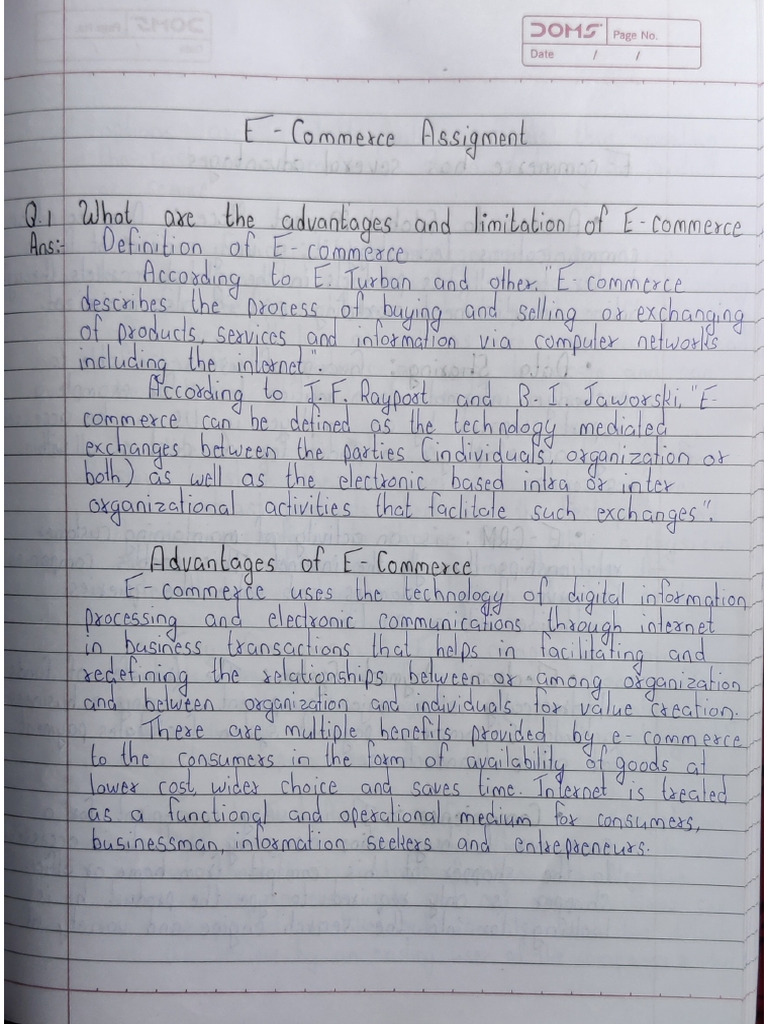 DOMS
Page No.
Date / /
E-Commerce Assigment
Q.1 What are the advantages and limitation of E-commerce
Ans:- Definition of E-commerce
According to E. Turban and other, "E-commerce
describes the process of buying and selling or exchanging
of products, services and information via computer networks
including the internet".
According to J. F. Rayport and B. I. Jaworski, "E-
commerce can be defined as the technology mediated
exchanges between the parties (individuals, organization or
both) as well as the electronic based intra or inter
organizational activities that facilitate such exchanges".
Advantages of E-Commerce
E-commerce uses the technology of digital information
processing and electronic communications through internet
in business transactions that helps in facilitating and
redefining the relationships between or among organization
and between organization and individuals for value creation.
There are multiple benefits provided by e-commerce
to the consumers in the form of availability of goods at
lower cost, wider choice and saves time. Internet is treated
as a functional and operational medium for consumers,
businessman, information seekers and entrepreneurs.